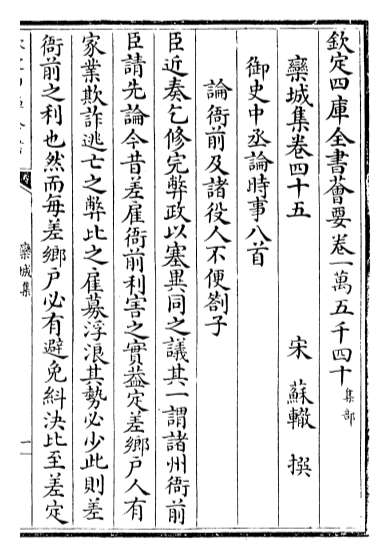 欽定四庫全書薈要卷一萬五千四十 集部
欒城集卷四十五
宋 蘇轍 撰
御史中丞論時事八首
論衙前及諸役人不便劄子
臣近奏乞修完弊政以塞異同之議其一謂諸州衙前
臣請先論今昔差雇衙前利害之實葢定差鄉户人有
家業欺詐逃亡之弊比之雇募浮浪其勢必少此則差
衙前之利也然而每差鄉户必有避免糾決比至差定
欒城集
一